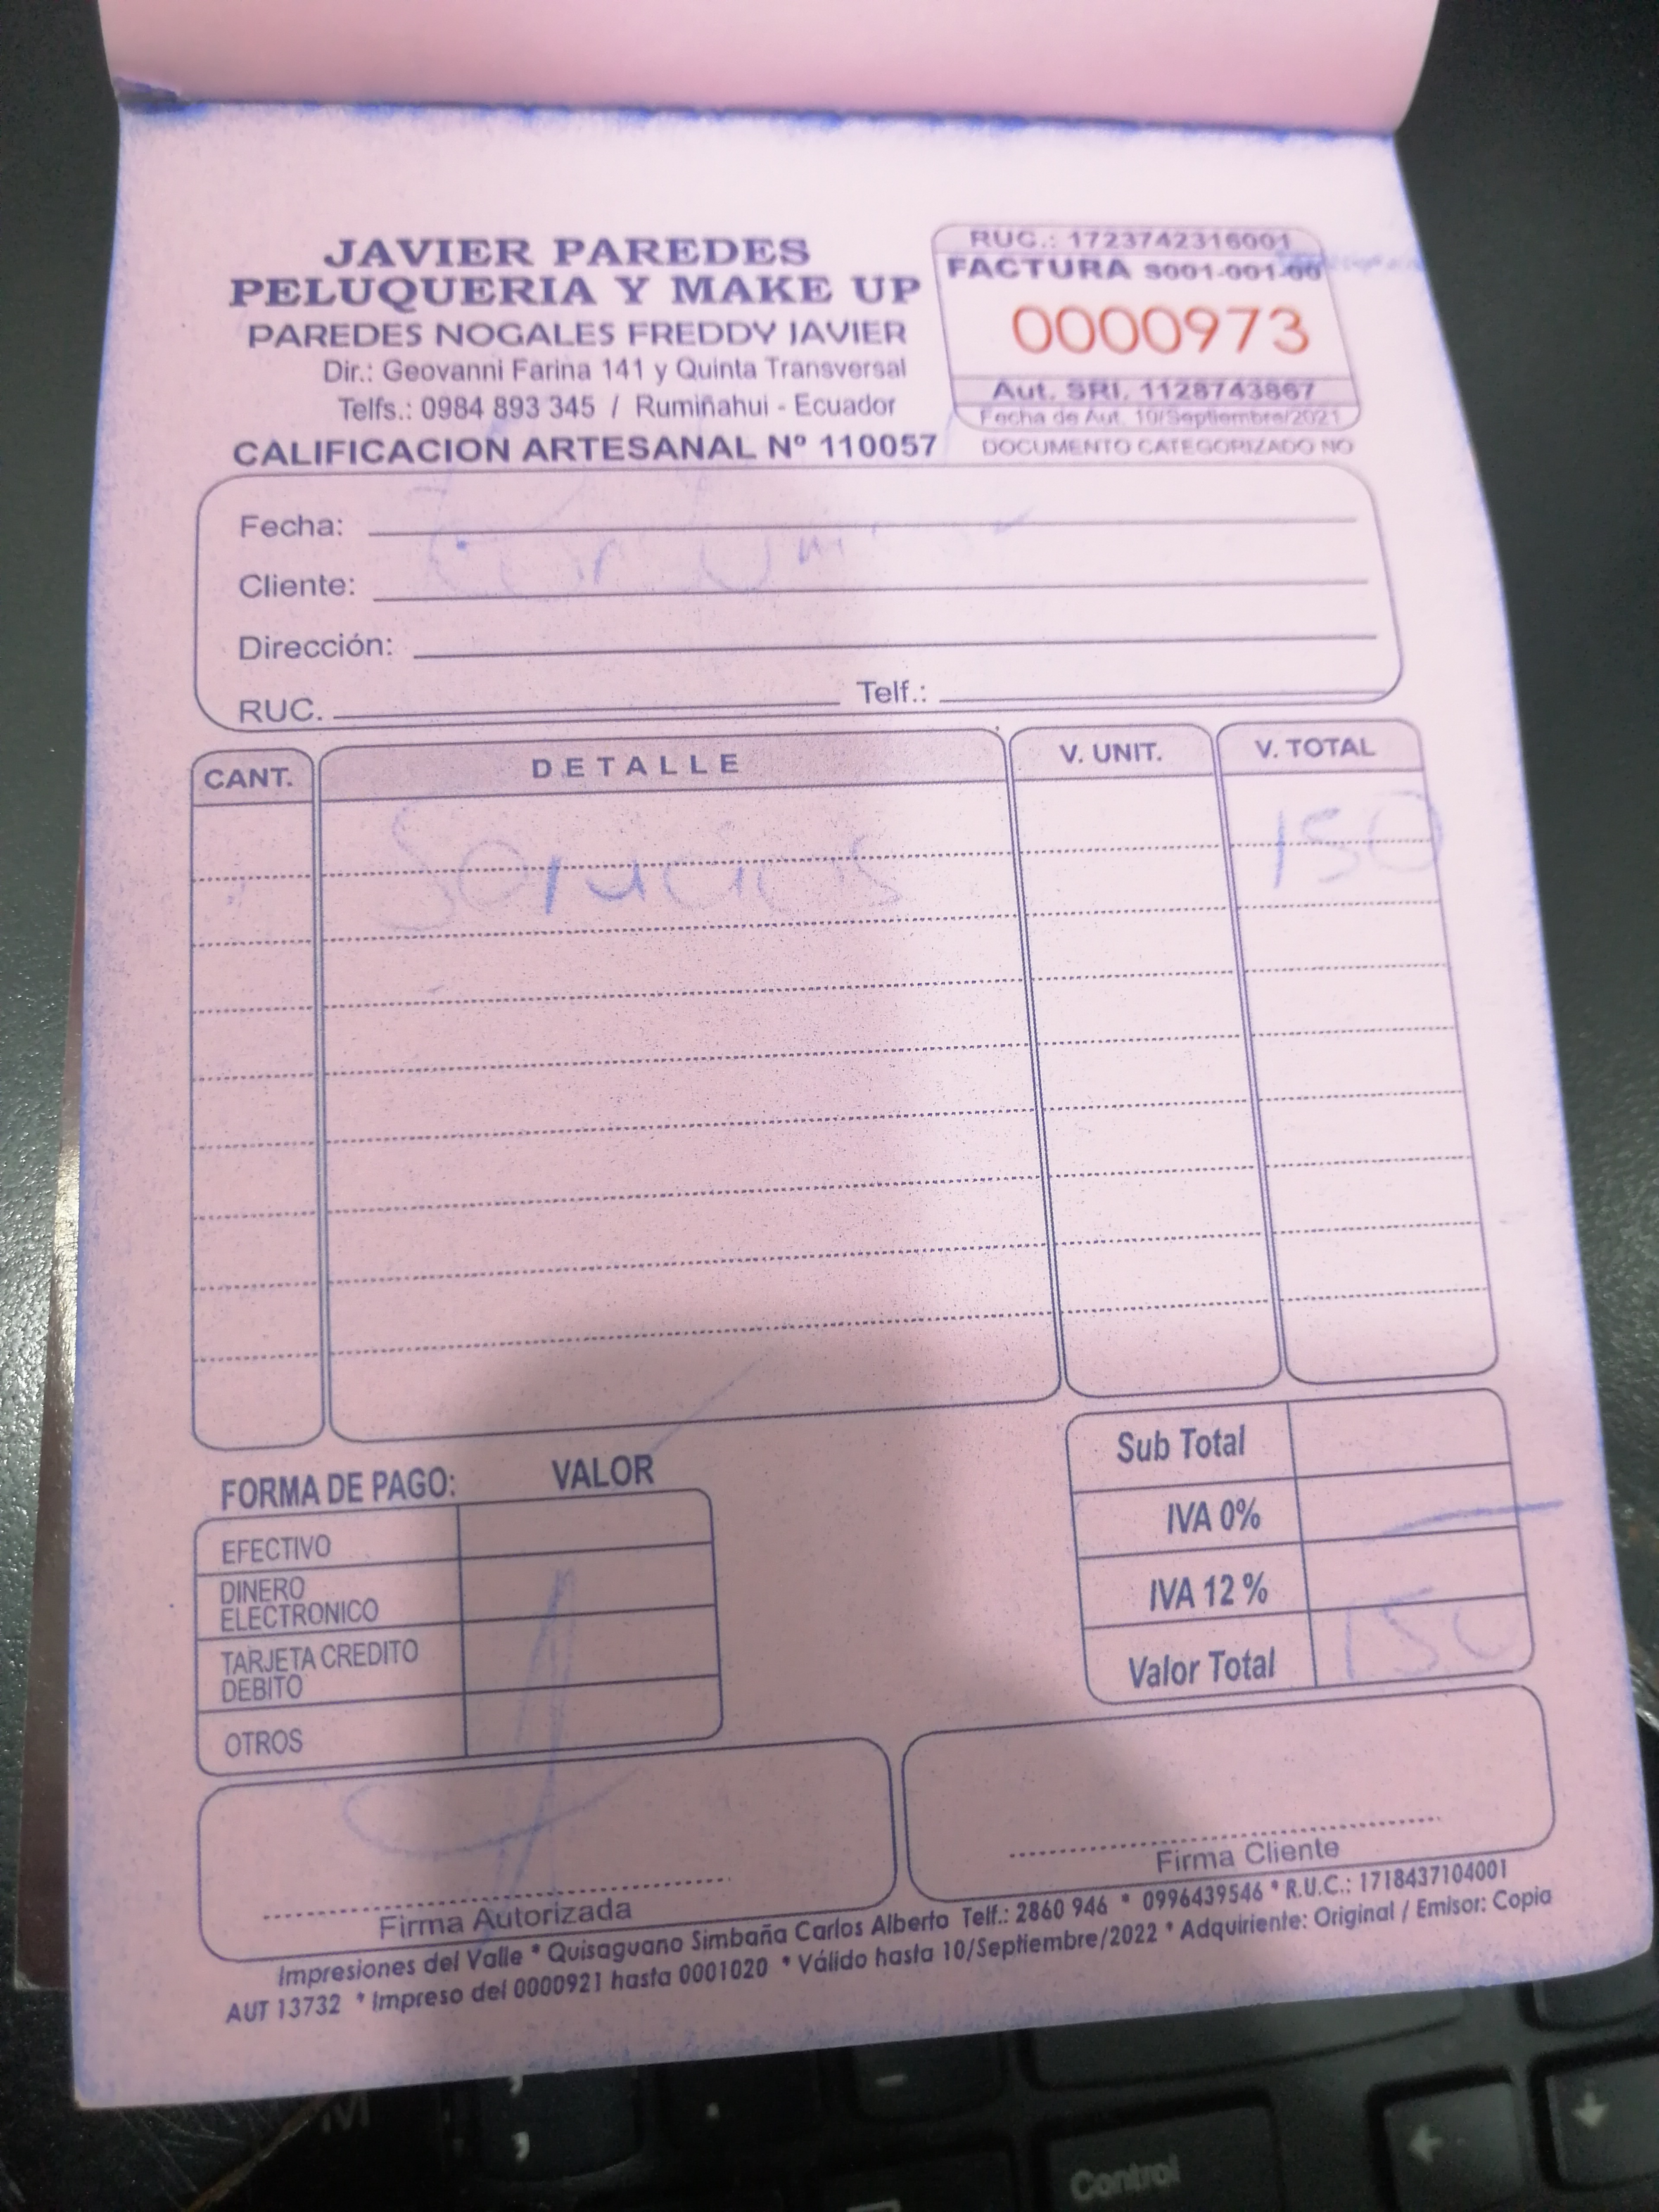 JAVIER PAREDES
PELUQUERIA Y MAKE UP
PAREDES NOGALES FREDDY JAVIER
Dir.: Geovanni Farina 141 y Quinta Transversal
Telfs.: 0984 893 345 / Rumiñahui - Ecuador
CALIFICACION ARTESANAL Nº 110057
RUC.: 1723742316001
FACTURA S001-001-00
0000973
Aut. SRI. 1128743867
Fecha de Aut. 10/Septiembre/2021
DOCUMENTO CATEGORIZADO NO
Fecha:
Cliente:
Dirección:
RUC. Telf.:
CANT. DETALLE V. UNIT. V. TOTAL
Servicios 150
FORMA DE PAGO: VALOR
EFECTIVO
DINERO
ELECTRONICO
TARJETA CREDITO
DEBITO
OTROS
Sub Total
IVA 0%
IVA 12 %
Valor Total 150
Firma Autorizada
Firma Cliente
Impresiones del Valle * Quisaguano Simbaña Carlos Alberto Telf.: 2860 946 * 0996439546 * R.U.C.: 1718437104001
AUT 13732 * Impreso del 0000921 hasta 0001020 * Válido hasta 10/Septiembre/2022 * Adquiriente: Original / Emisor: Copia
Control